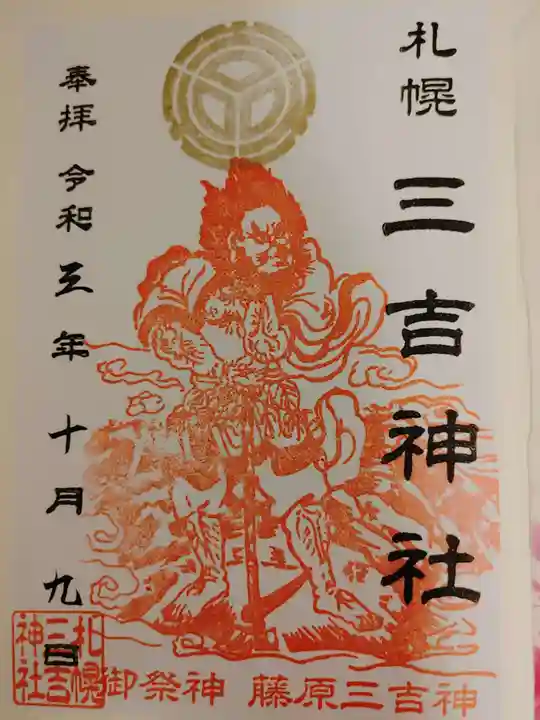 札幌 三吉神社
奉拝 令和五年 十月 九日
御祭神 藤原三吉神
札幌
三吉
神社